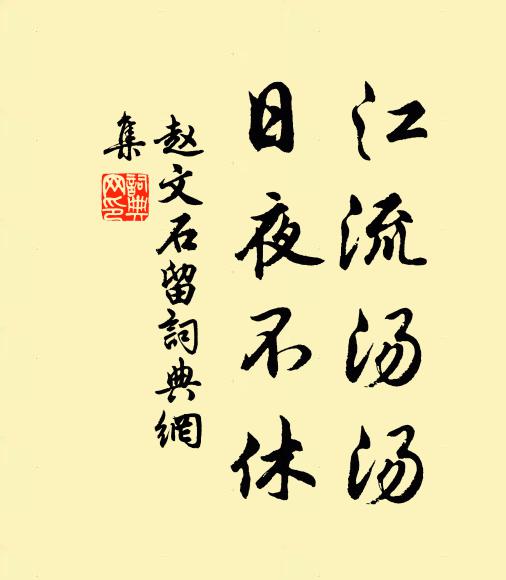 江流汤汤
日夜不休
赵文石留詞典網
集
詞典
网印